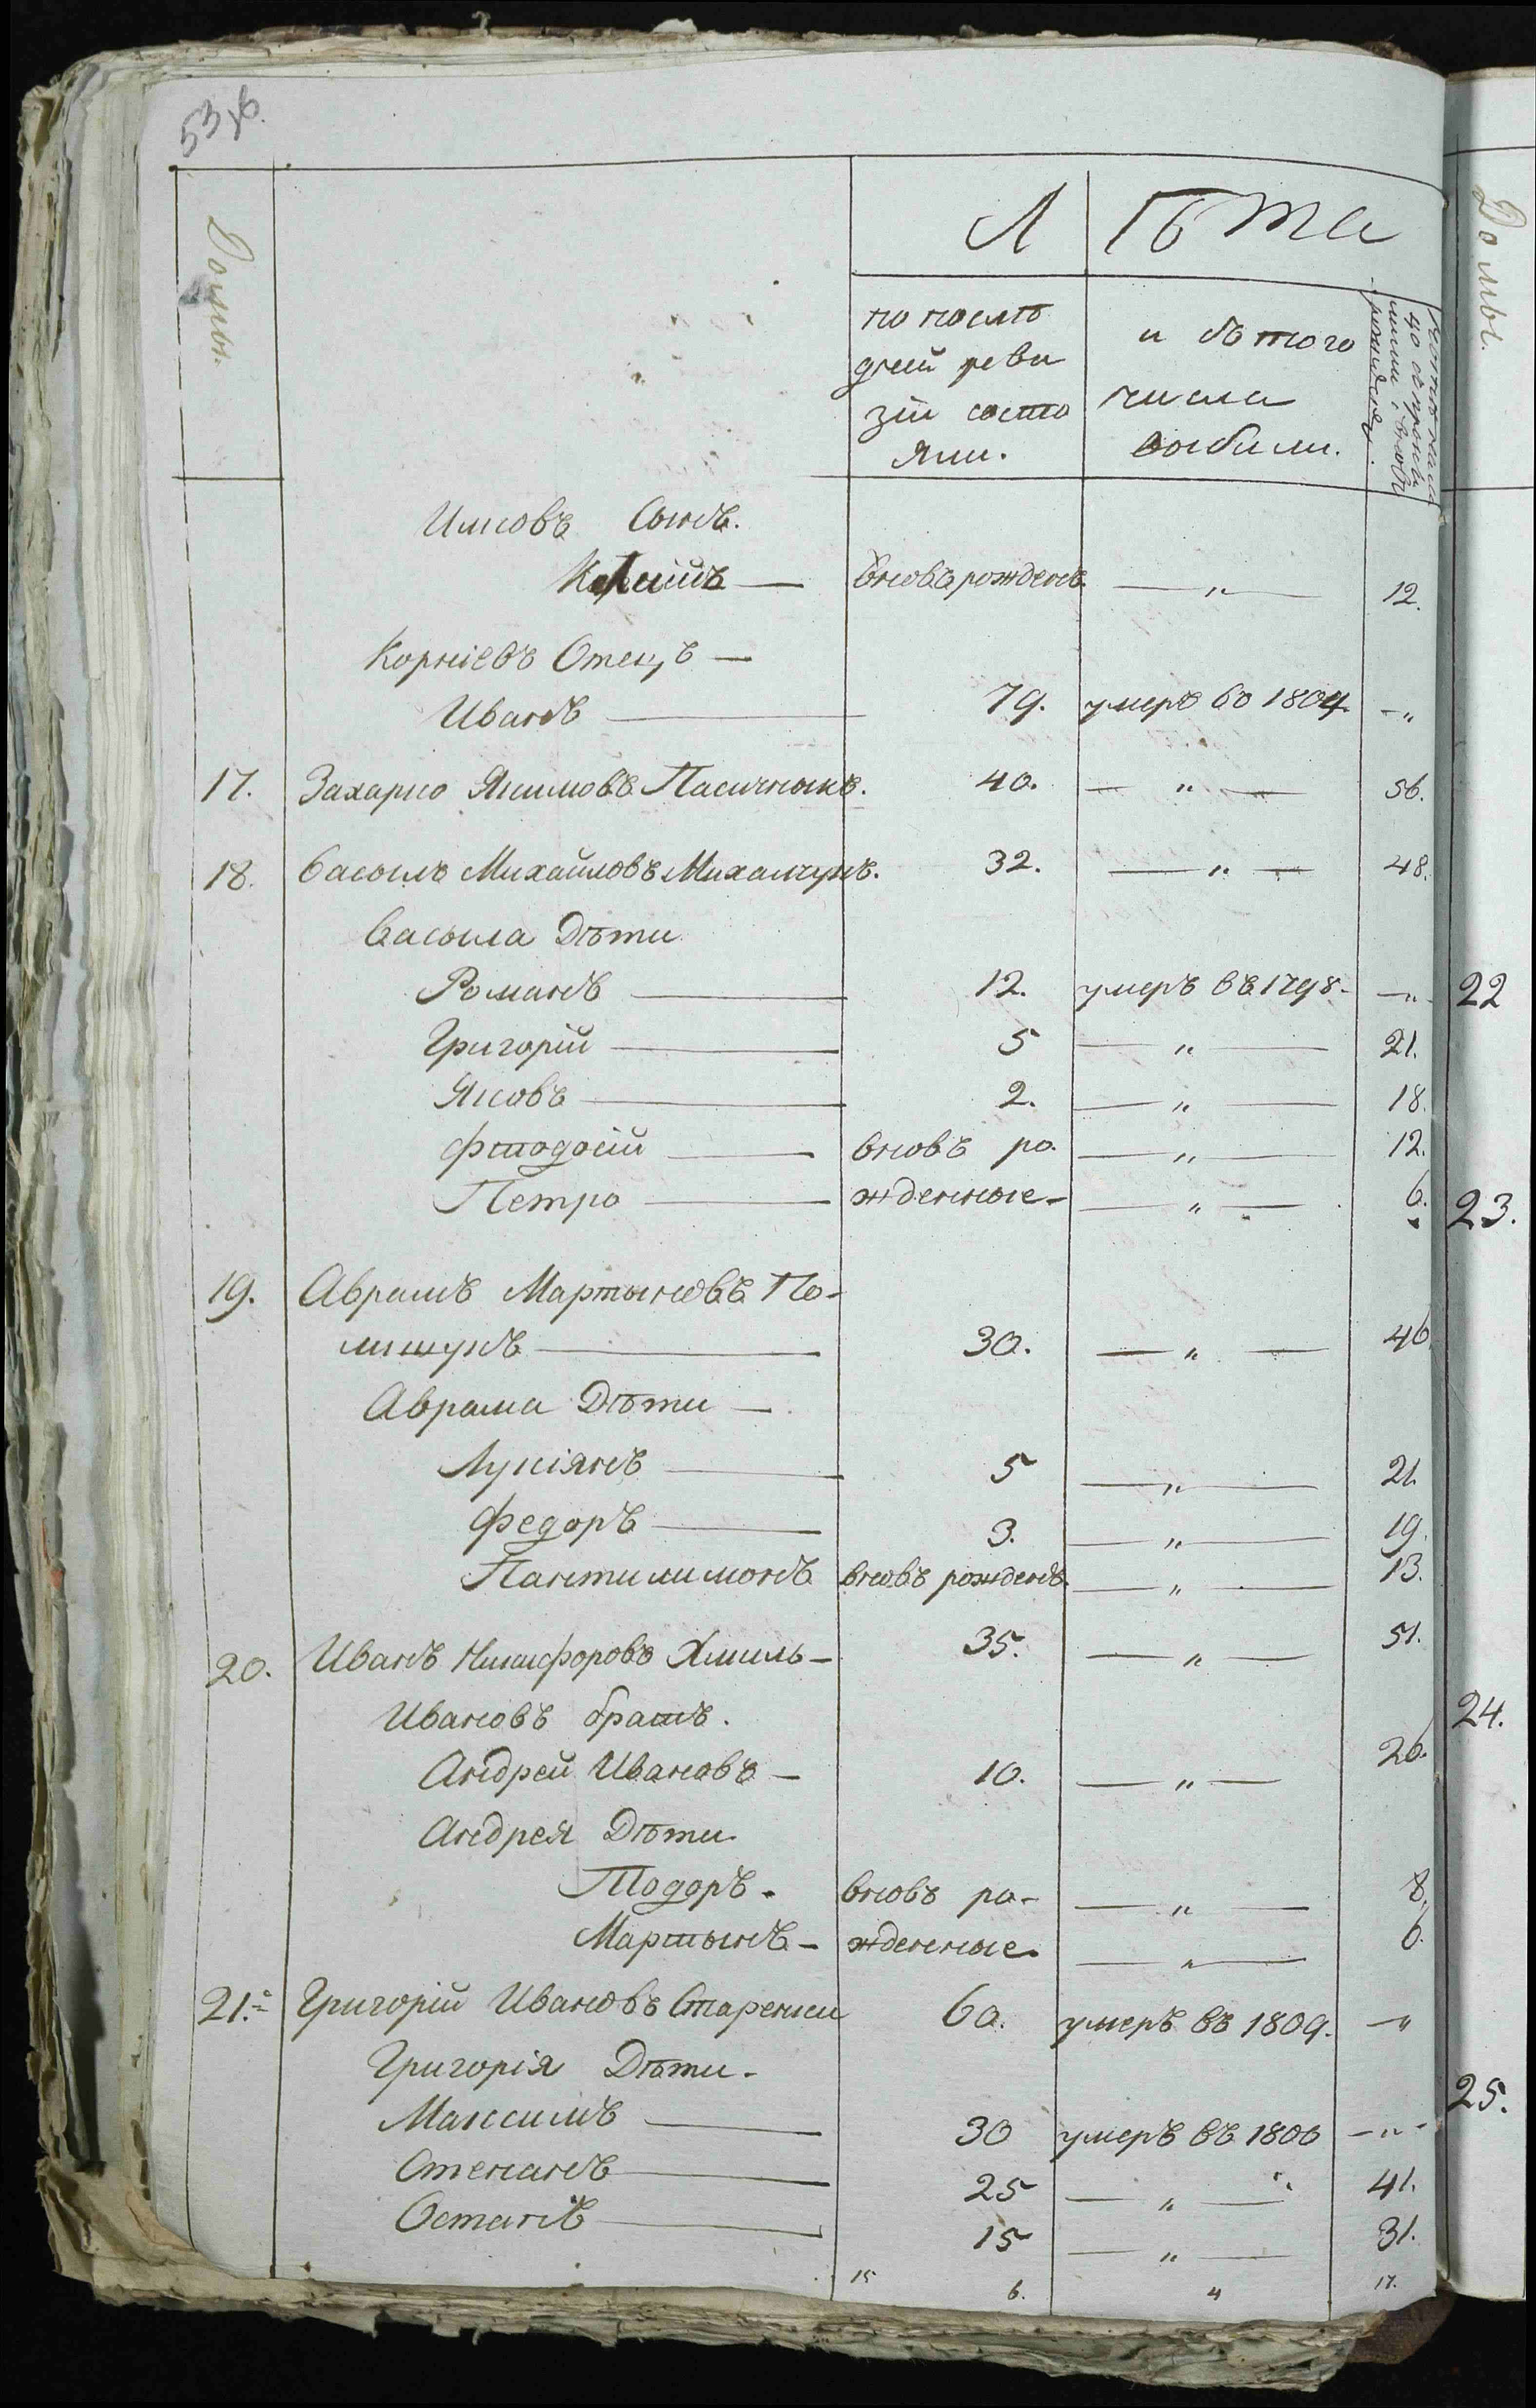 5376.
Домы.
Лѣта
по послѣ
дней реви
зіи состо
яли.
и съ того
числа
выбыли.
Илковъ Сынъ.
вновь рожденъ. — „ — 12.
Корніевъ Отецъ —
Иванъ — 79. умеръ во 1804. — „
17. Захарко Якимовъ Пасичныкъ. 40. — „ — 56.
18. Василь Михайловъ Михалчукъ. 32. — „ — 48.
Васыла Дѣти
Романъ — 12. умеръ въ 1798. — „ —
Григорій — 5 — „ — 21.
Яковъ — 2. — „ — 18.
Фтодосій — вновь ро. — „ — 12.
Петро — жденные — — „ — 6.
19. Аврамъ Мартыновъ По-
лищукъ — 30. — „ — 46.
Аврама Дѣти —
Лукіянъ — 5 — „ — 21.
Федоръ — 3. — „ — 19.
Пантилимонъ вновь рожденъ. — „ — 13.
20. Иванъ Никифоровъ Хмиль — 35. — „ — 51.
Ивановъ братъ.
Андрей Ивановъ — 10. — „ — 26.
Андрея Дѣти
Тодоръ. вновь ро- — „ — 8.
Мартынъ — жденные. — „ — 6.
21. Григорій Ивановъ 60. умеръ въ 1809. — „
Григорія Дѣти.
Максимъ — 30 умеръ въ 1806 — „ —
Степанъ — 25 — „ — 41.
Остапъ — 15 — „ — 31.
15 6. 4 17.
Домы.
22
23.
24.
25.